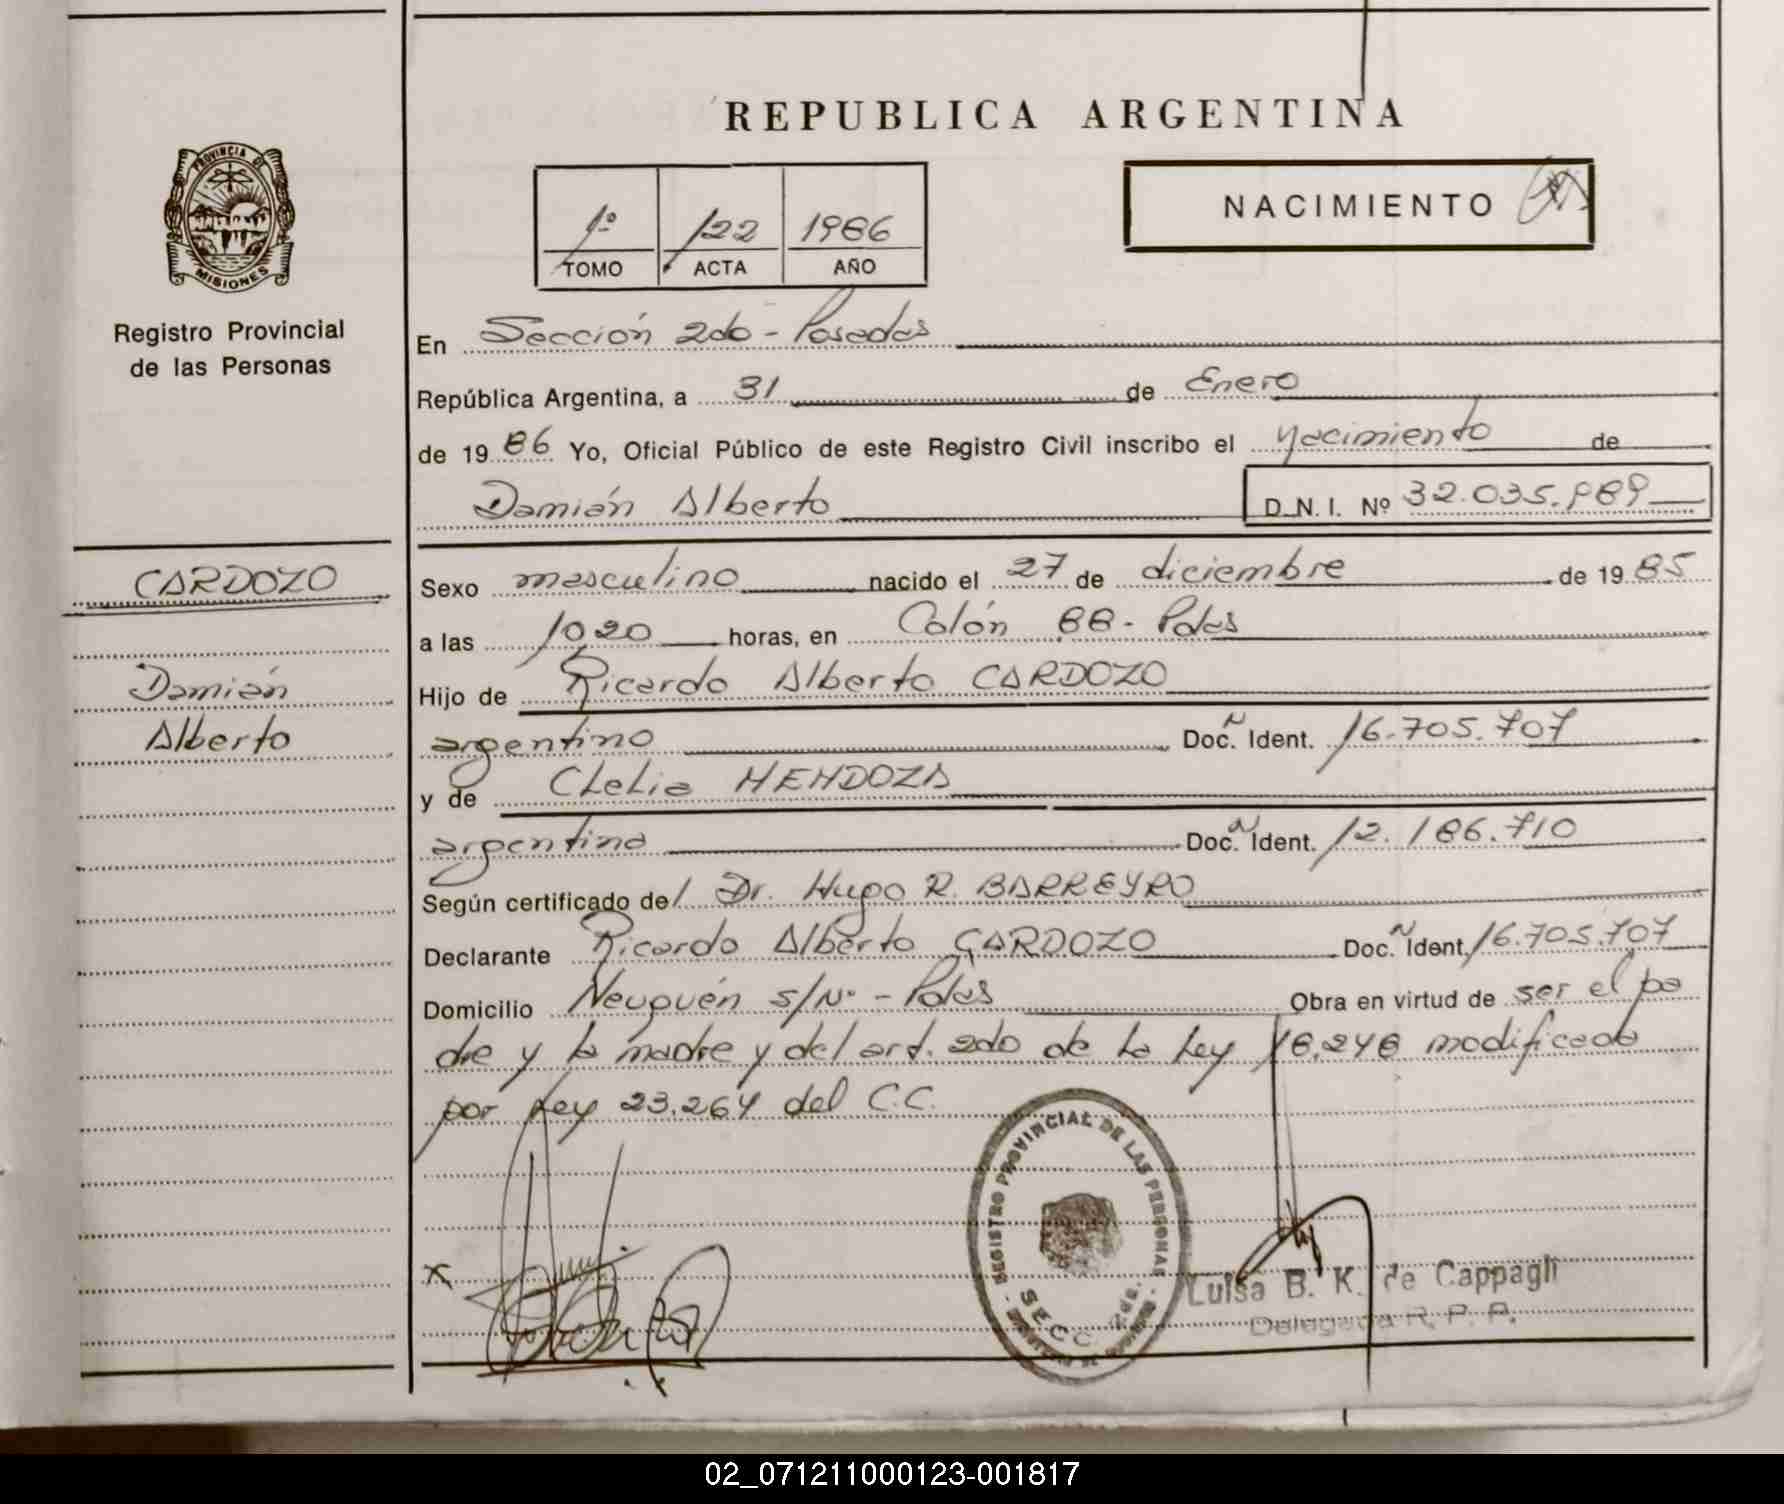 REPUBLICA ARGENTINA
PROVINCIA DE
MISIONES
Registro Provincial
de las Personas
1º 122 1986
TOMO ACTA AÑO
NACIMIENTO
En Sección 2do - Posadas
República Argentina, a 31 de Enero
de 19 86 Yo, Oficial Público de este Registro Civil inscribo el nacimiento de
Damián Alberto D.N.I. Nº 32.035.989
CARDOZO
Damián
Alberto
Sexo masculino nacido el 27 de diciembre de 19 85
a las 1020 horas, en Colón 88 - Pdas
Hijo de Ricardo Alberto CARDOZO
argentino Doc. Ident. 16.705.707
y de CLeLia MENDOZA
argentina Doc. Ident. 12.186.710
Según certificado del Dr. Hugo R. BARREYRO
Declarante Ricardo Alberto CARDOZO Doc. Ident. 16.705.707
Domicilio Neuquén s/Nº - Pdas Obra en virtud de ser el pa
dre y la madre y del art. 2do de la Ley 18.248 modificado
por Ley 23.264 del C.C.
REGISTRO PROVINCIAL DE LAS PERSONAS
SECC.
Luisa B. K. de Cappagli
Delegada R. P. P.
02_071211000123-001817